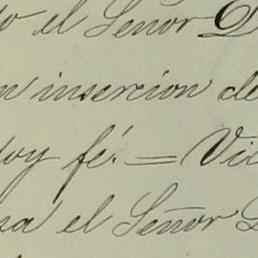 o el Señor D
n insercion de
doy fé. = Vic
sa el Señor D